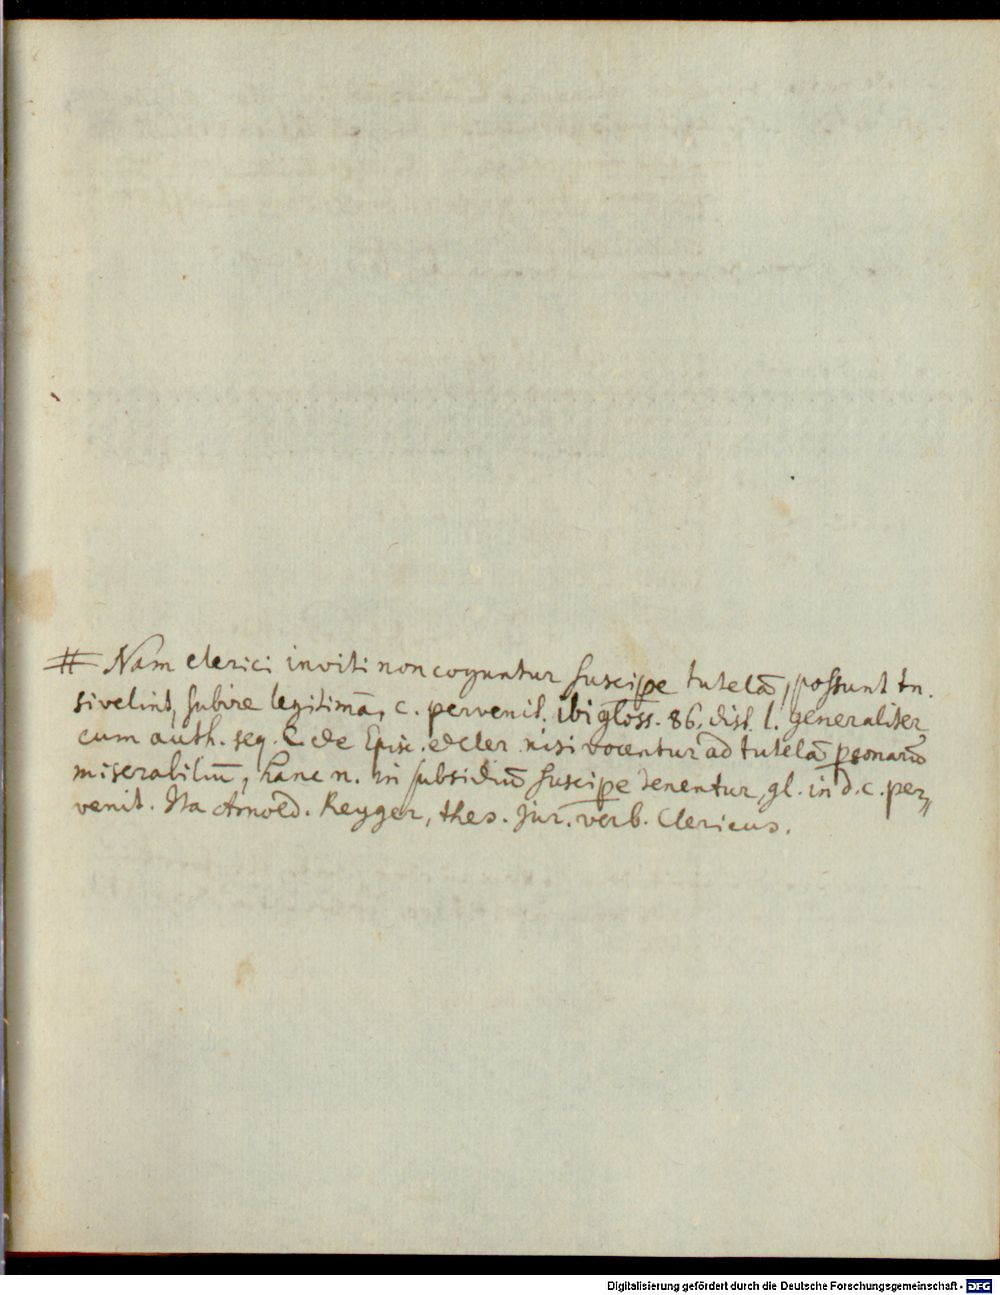 # Nam clerici inviti non coguntur suscipe tutelā, possunt tn.
si velint, subire legitimā, c. pervenit. ibi gloss. 86. dist. l. generaliter
cum auth. seq. C. de Episc. et cler nisi vocentur ad tutelā psonarū
miserabiliū, hanc n. in subsidiū suscipe tenentur, gl. in d. c. per„
venit. Ita Arnold. Reyger, thes. Jur. verb. Clericus.
Digitalisierung gefördert durch die Deutsche Forschungsgemeinschaft - DFG